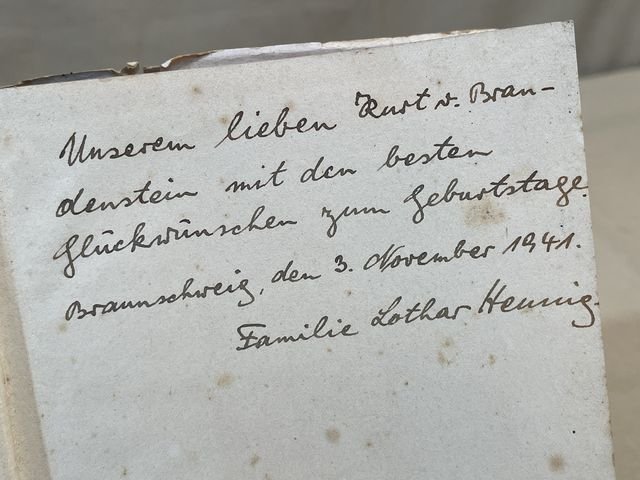 Unserem lieben Kurt v. Bran-
denstein mit den besten
Glückwünschen zum Geburtstage.
Braunschweig, den 3. November 1941.
Familie Lothar Hennig.